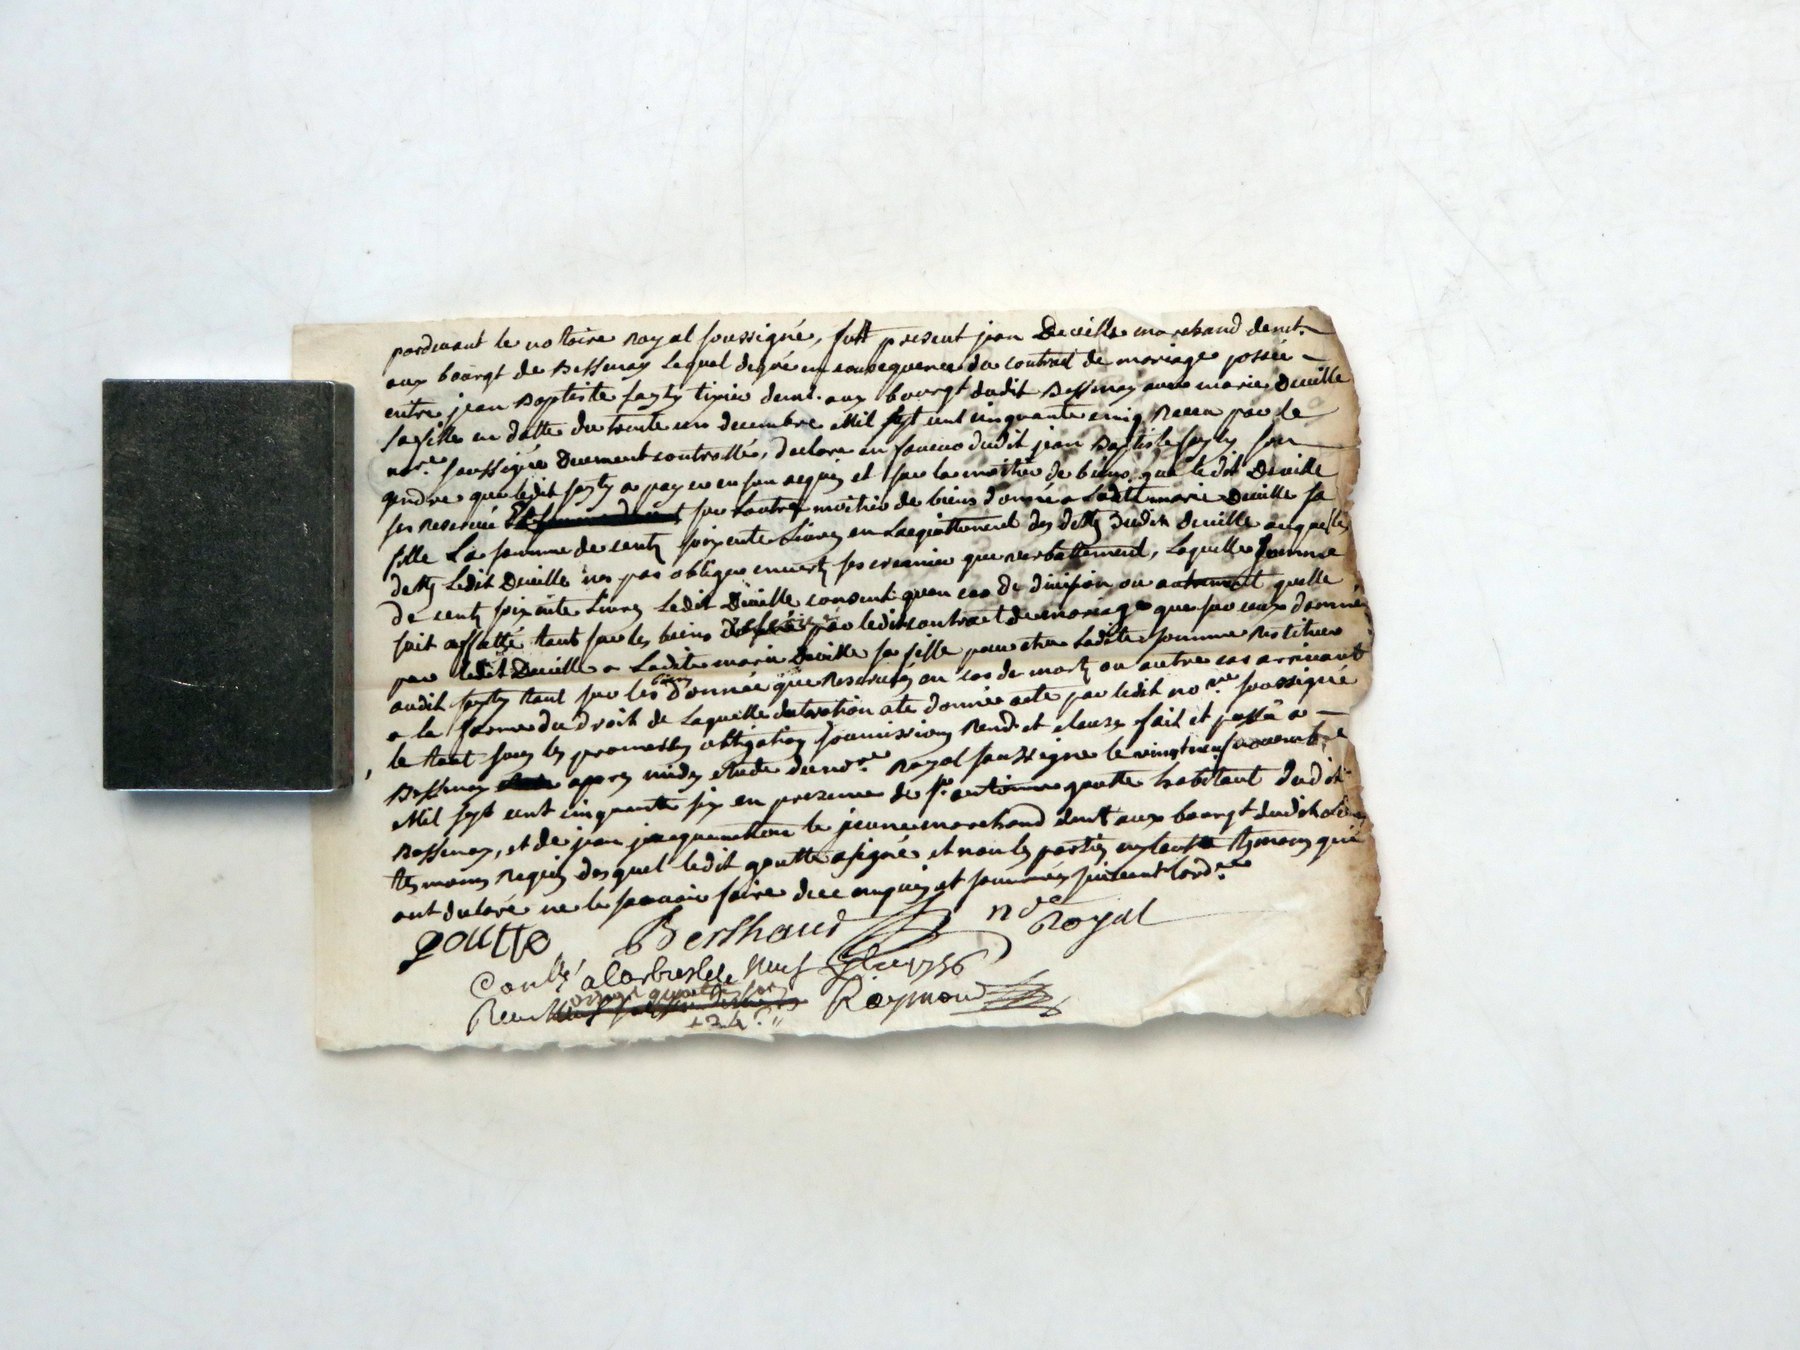 pardevant le notaire royal soussigné, futt present jean Deville marchand demt.
aux bourgt de Bessenay Lequel degré en consequence du contrat de mariage passée
entre jean Baptiste fayty tixier demt. aux bourgt dudit Bessenay avec marie Deville
sa fille en datte du trente un decembre Mil sept cent cinquante cinq Receu par le
nore. soussigné Duement controllé, declare en faveur dudit jean Baptiste fayty son
gendre que ledit fayty a payé en son acquis et sur la moitié de biens que ledit Deville
ses reservé sur l'autre moitié de biens donnée a Ladite marie Deville sa
fille La somme de centz soixente Livres en Lacquittement des dettz dudit Deville auquelles
dettz Ledit Deville nes pas obligee enverz ses creancier que verballement, Laquelle somme
de centz soixente Livres Ledit Deville consent quen cas de division ou autrement quelle
soit affattée tant sur les biens par ledit contrat de mariage que sur ceux donnés
par ledit Deville a Ladite marie Deville sa fille pour etre Ladite somme restituée
audit fayty tant sur les biens donnée que reservés en cas de mortz ou autre cas arrivant
a la forme du droit de Laquelle declaration a ete donnée acte par ledit nore. soussigné
le tout sous les promesses obligations soumissions Rend. et clauses fait et passé a
Bessenay apres midy etude du nore. Royal soussigne le vingt neuf novembre
Mil sept cent cinquante six en presence de sr. antoinne goutte habitant dudit
Bessenay, et de jean jacquemetton le jeune marchand demt aux bourgt dudit
temoins Requis desquel ledit goutte a signé et non les parties ny lautre temoins qui
ont declaré ne le scavoir faire de ce enquis et sommés suivant lordce
goutte Berthaud nore Royal
Contlé a Larbresle le neuf Xbre 1756
Receu Raymond